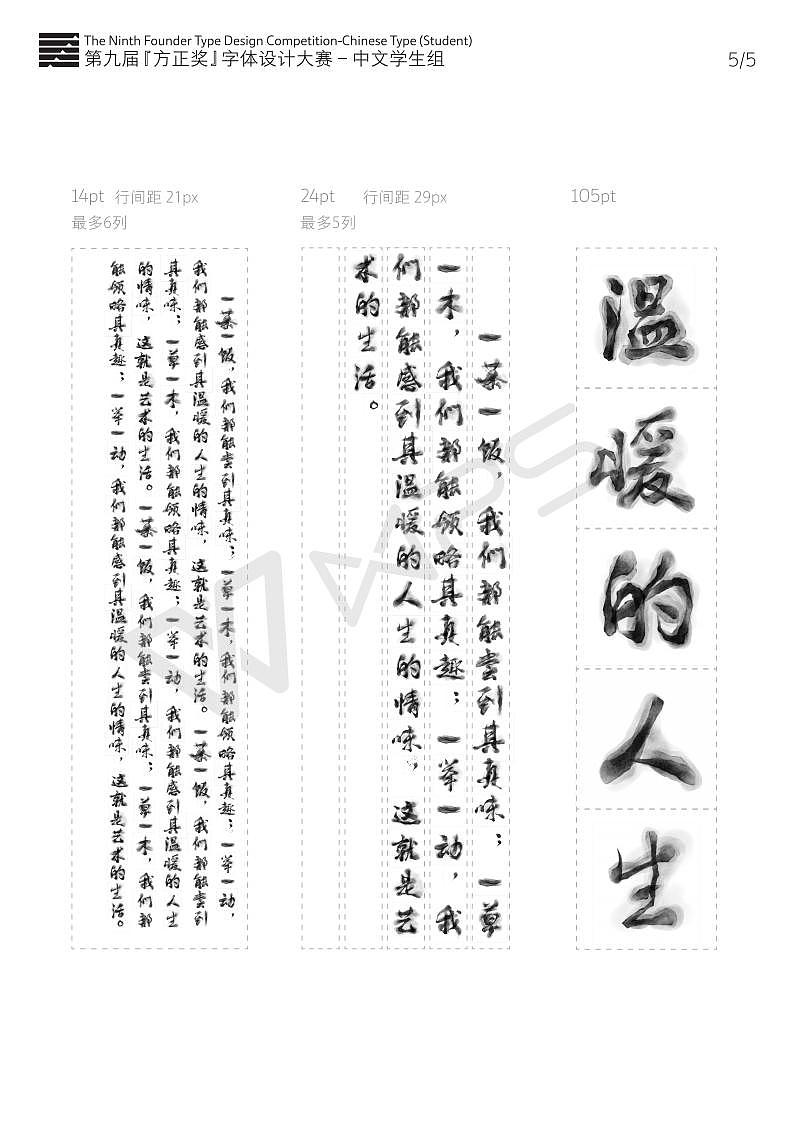 The Ninth Founder Type Design Competition-Chinese Type (Student)
第九届『方正奖』字体设计大赛 – 中文学生组
5/5
14pt 行间距 21px
最多6列
一菜一饭，我们都能尝到其真味；一草一木，我们都能领略其真趣；一举一动，
我们都能感到其温暖的人生的情味，这就是艺术的生活。一菜一饭，我们都能尝到
其真味；一草一木，我们都能领略其真趣；一举一动，我们都能感到其温暖的人生
的情味，这就是艺术的生活。一菜一饭，我们都能尝到其真味；一草一木，我们都
能领略其真趣；一举一动，我们都能感到其温暖的人生的情味，这就是艺术的生活。
24pt 行间距 29px
最多5列
一菜一饭，我们都能尝到其真味；一草
一木，我们都能领略其真趣；一举一动，我
们都能感到其温暖的人生的情味，这就是艺
术的生活。
105pt
温暖的人生